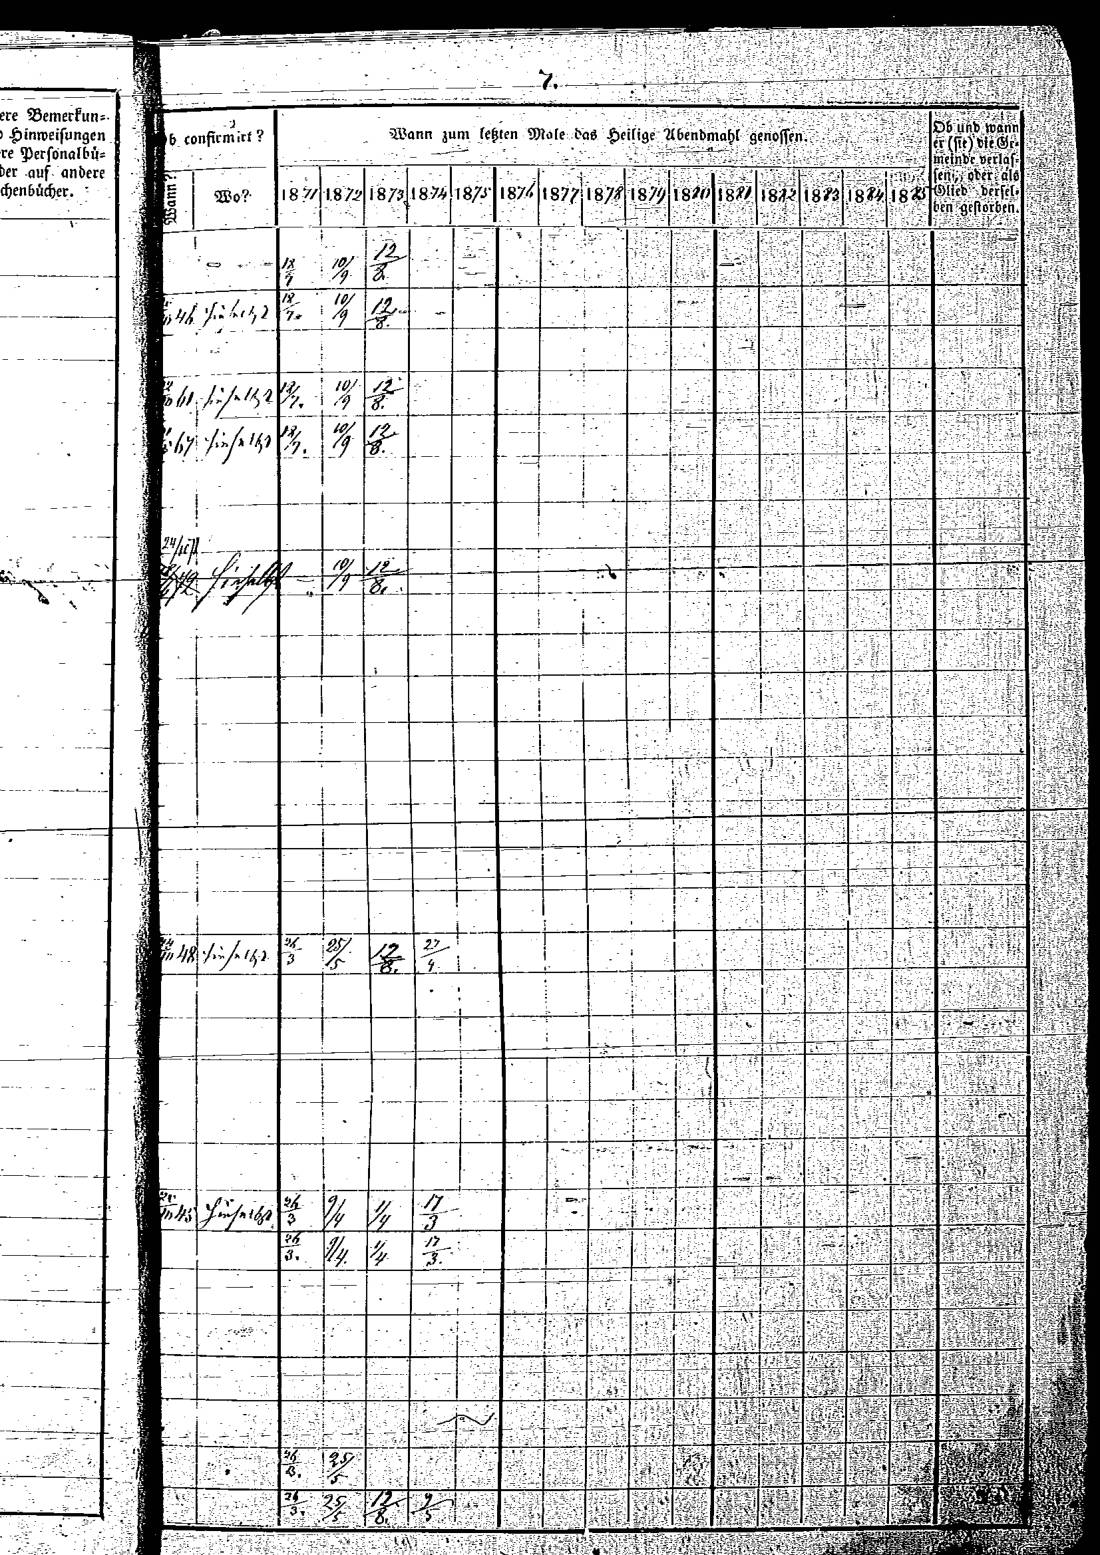 7.
ere Bemerkun-
Hinweisungen
re Personalbü-
der auf andere
chenbücher.
Ob confirmirt?
Wann?
Wo?
Wann zum letzten Male das Heilige Abendmahl genossen.
1871 1872 1873 1874 1875 1876 1877 1878 1879 1880 1881 1882 1883 1884 1885
Ob und wann
er (sie) die Ge-
meinde verlas-
sen, oder als
Glied dersel-
ben gestorben.
18/7 10/9 12/8.
46 18/7. 10/9 12/8.
61 18/7. 10/9 12/8.
67 18/7. 10/9 12/8.
24/
10/9 12/8.
48 26/3 25/5 12/8. 27/4.
45 26/3 9/4 1/4 17/3
26/3. 9/4. 1/4 17/3.
26/3. 25/5
26/3. 25/5 12/8. 9/5